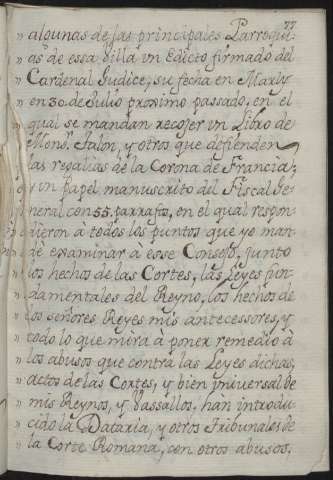 77
„ algunas de las principales Parroqui-
„ as de esta Villa un Edicto firmado del
„ Cardenal Judice, su fecha en Marly
„ en 30 de Julio proximo passado, en el
„ qual se mandan recojer un Libro de
„ Monsr. Talon, y otros que defienden
„ las regalias de la Corona de Francia,
y un papel manuscrito del Fiscal Ge-
neral con 55. parrafos, en el qual respon-
dieron a todos los puntos que yo man-
dè examinar a esse Consejo, junto
los hechos de las Cortes, las Leyes fun-
„ damentales del Reyno, los hechos de
„ los señores Reyes mis antecessores, y
„ todo lo que mira à poner remedio à
„ los abusos que contra las Leyes dichas,
„ actos de las Cortes, y bien universal de
„ mis Reynos, y Vassallos, han introdu-
„ cido la Dataria, y otros Tribunales de
„ la Corte Romana, con otros abusos.